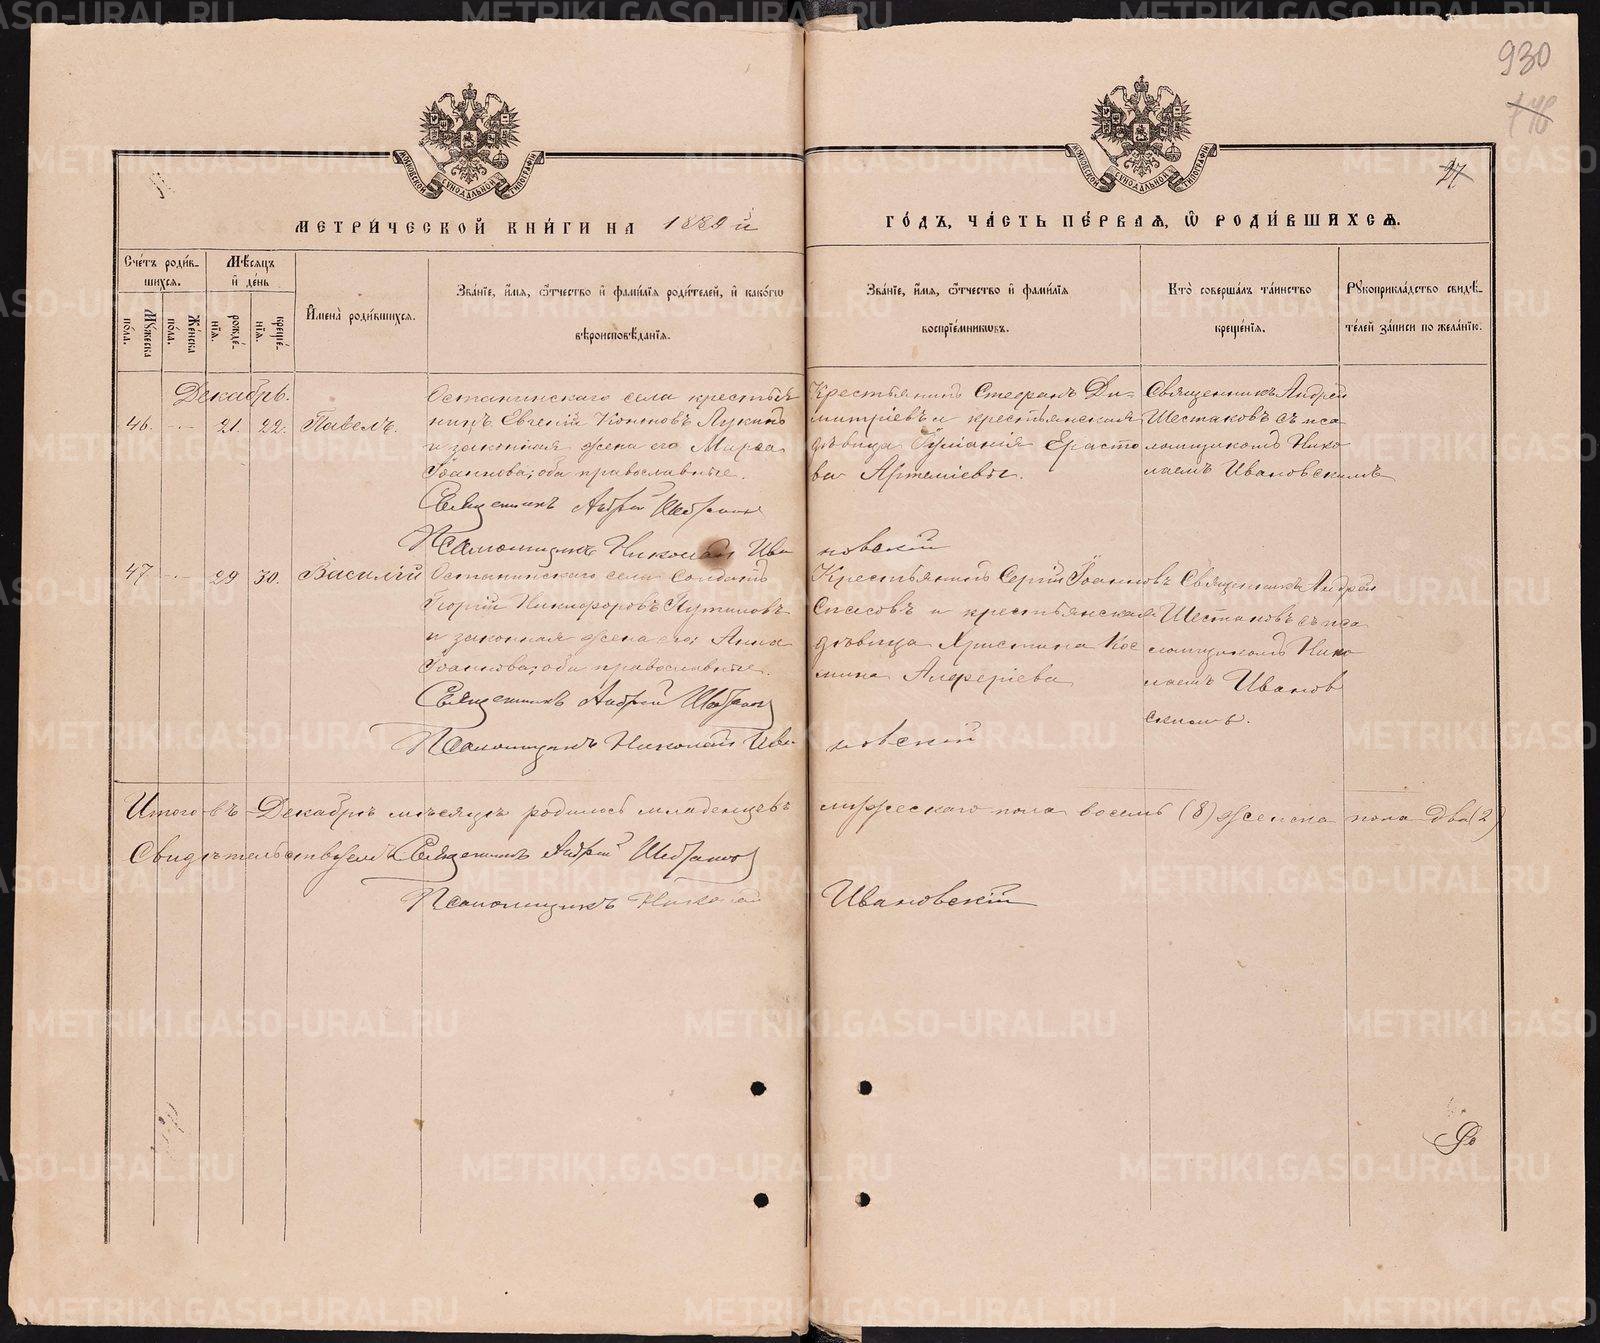 930
748
27
МОСКОВСКОЙ СѴНОДАЛЬНОЙ ТИПОГРАФІИ
МОСКОВСКОЙ СѴНОДАЛЬНОЙ ТИПОГРАФІИ
МЕТРИЧЕСКОЙ КНИГИ НА 1889 й
ГОДЪ, ЧАСТЬ ПЕРВАЯ, Ѡ РОДИВШИХСЯ.
Счетъ родив-
шихся.
Мужеска пола.
Женска пола.
Мѣсяцъ и день
рожде-
нія.
креще-
нія.
Имена родившихся.
Званіе, имя, отчество и фамилія родителей, и какогѡ
вѣроисповѣданія.
Званіе, имя, отчество и фамилія
воспріемниковъ.
Кто совершалъ таинство
крещенія.
Рукоприкладство свидѣ-
телей записи по желанію.
Декабрь.
46. 21. 22. Павелъ.
Останинскаго села крестья
нинъ Евгеній Кононовъ Лукинъ
и законная жена его Марѳа
Іоаннова; оба православные.
Священникъ Андрей Шестаковъ
Псаломщикъ Николай Ивановскій
Крестьянинъ Стефанъ Ди-
митріевъ и крестьянская
дѣвица Ерасто
ва Артеміевы.
Священникъ Андрей
Шестаковъ съ пса
ломщикомъ Нико
лаемъ Ивановскимъ
47 29 30. Василій
Останинскаго села Солдатъ
Георгій Никифоровъ Путиловъ
и законная жена его Анна
Іоаннова; оба православные.
Священникъ Андрей Шестаковъ
Псаломщикъ Николай Ивановскій
Крестьянинъ Сергій Іоанновъ
Спасовъ и крестьянская
дѣвица Христина Кос
мина Алферіева
Священникъ Андрей
Шестаковъ съ пса
ломщикомъ Нико
лаемъ Иванов
скимъ.
Итого въ Декабрѣ мѣсяцѣ родилось младенцевъ мужескаго пола восемь (8) женска пола два (2)
Свидѣтельствуемъ Священникъ Андрей Шестаковъ
Псаломщикъ Николай Ивановскій
METRIKI.GASO-URAL.RU